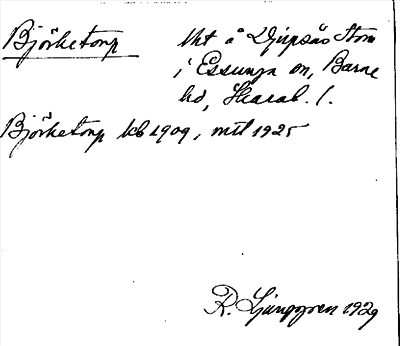 Björketorp
lht å Djupsås Stom
i Essunga sn, Barne
hd, Skarab. l.
Björketorp kb 1909, mtl 1925
R. Ljunggren 1929